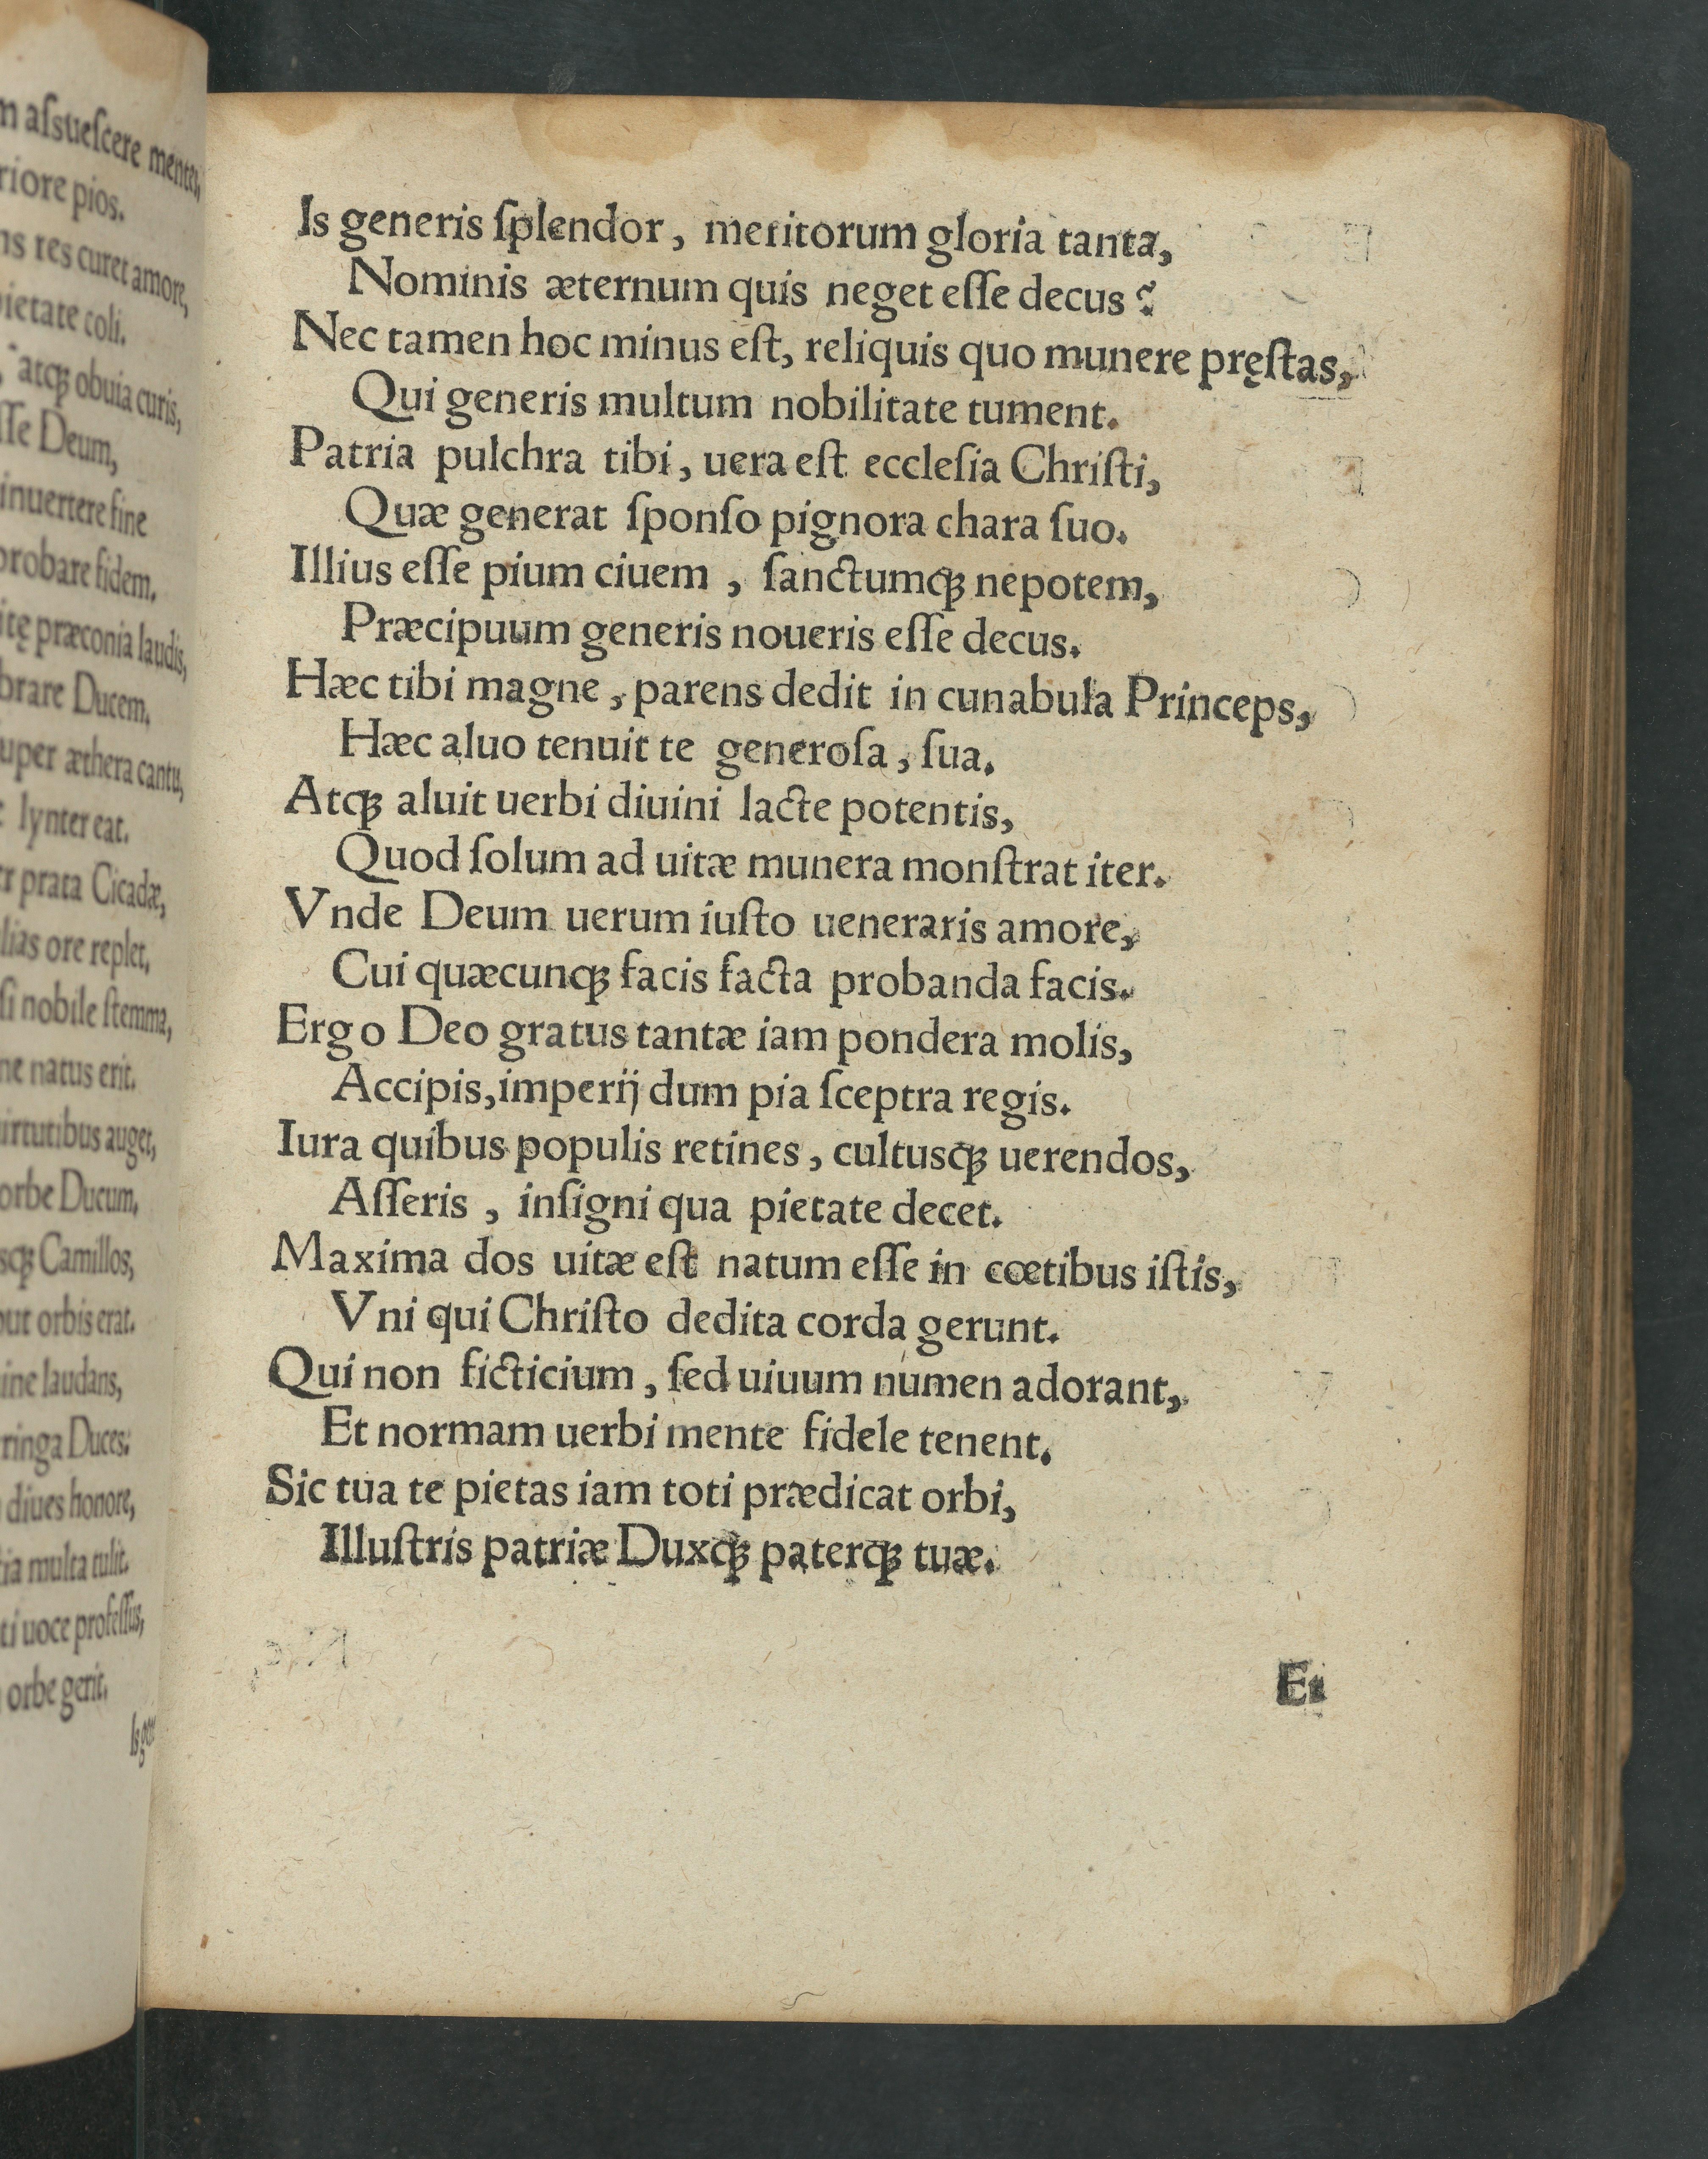 m aſsueſcere mentes,
riore pios.
ns res curet amore,
pietate coli.
atqꝫ obuia curis,
ſſe Deum,
inuertere fine
probare fidem.
itę præconia laudis,
brare Ducem.
uper æthera cantu,
lynter eat.
er prata Cicadæ,
lias ore replet,
ſi nobile ſtemma,
ne natus erit.
uirtutibus auget,
orbe Ducum,
sqꝫ Camillos,
put orbis erat.
ine laudans,
ringa Duces:
diues honore,
ia multa tulit.
ti uoce profeſſus,
orbe gerit.
Is gene
Is generis ſplendor, meritorum gloria tanta,
Nominis æternum quis neget eſſe decus?
Nec tamen hoc minus eſt, reliquis quo munere pręſtas,
Qui generis multum nobilitate tument.
Patria pulchra tibi, uera eſt eccleſia Chriſti,
Quæ generat ſponſo pignora chara ſuo.
Illius eſſe pium ciuem, ſanctumqꝫ nepotem,
Præcipuum generis noueris eſſe decus.
Hæc tibi magne, parens dedit in cunabula Princeps,
Hæc aluo tenuit te generoſa, ſua.
Atqꝫ aluit uerbi diuini lacte potentis,
Quod ſolum ad uitæ munera monſtrat iter.
Vnde Deum uerum iuſto ueneraris amore,
Cui quæcunqꝫ facis facta probanda facis.
Ergo Deo gratus tantæ iam pondera molis,
Accipis, imperij dum pia ſceptra regis.
Iura quibus populis retines, cultusqꝫ uerendos,
Aſſeris, inſigni qua pietate decet.
Maxima dos uitæ eſt natum eſſe in cœtibus iſtis,
Vni qui Chriſto dedita corda gerunt.
Qui non ficticium, ſed uiuum numen adorant,
Et normam uerbi mente fidele tenent.
Sic tua te pietas iam toti prædicat orbi,
Illuſtris patriæ Duxqꝫ paterqꝫ tuæ.